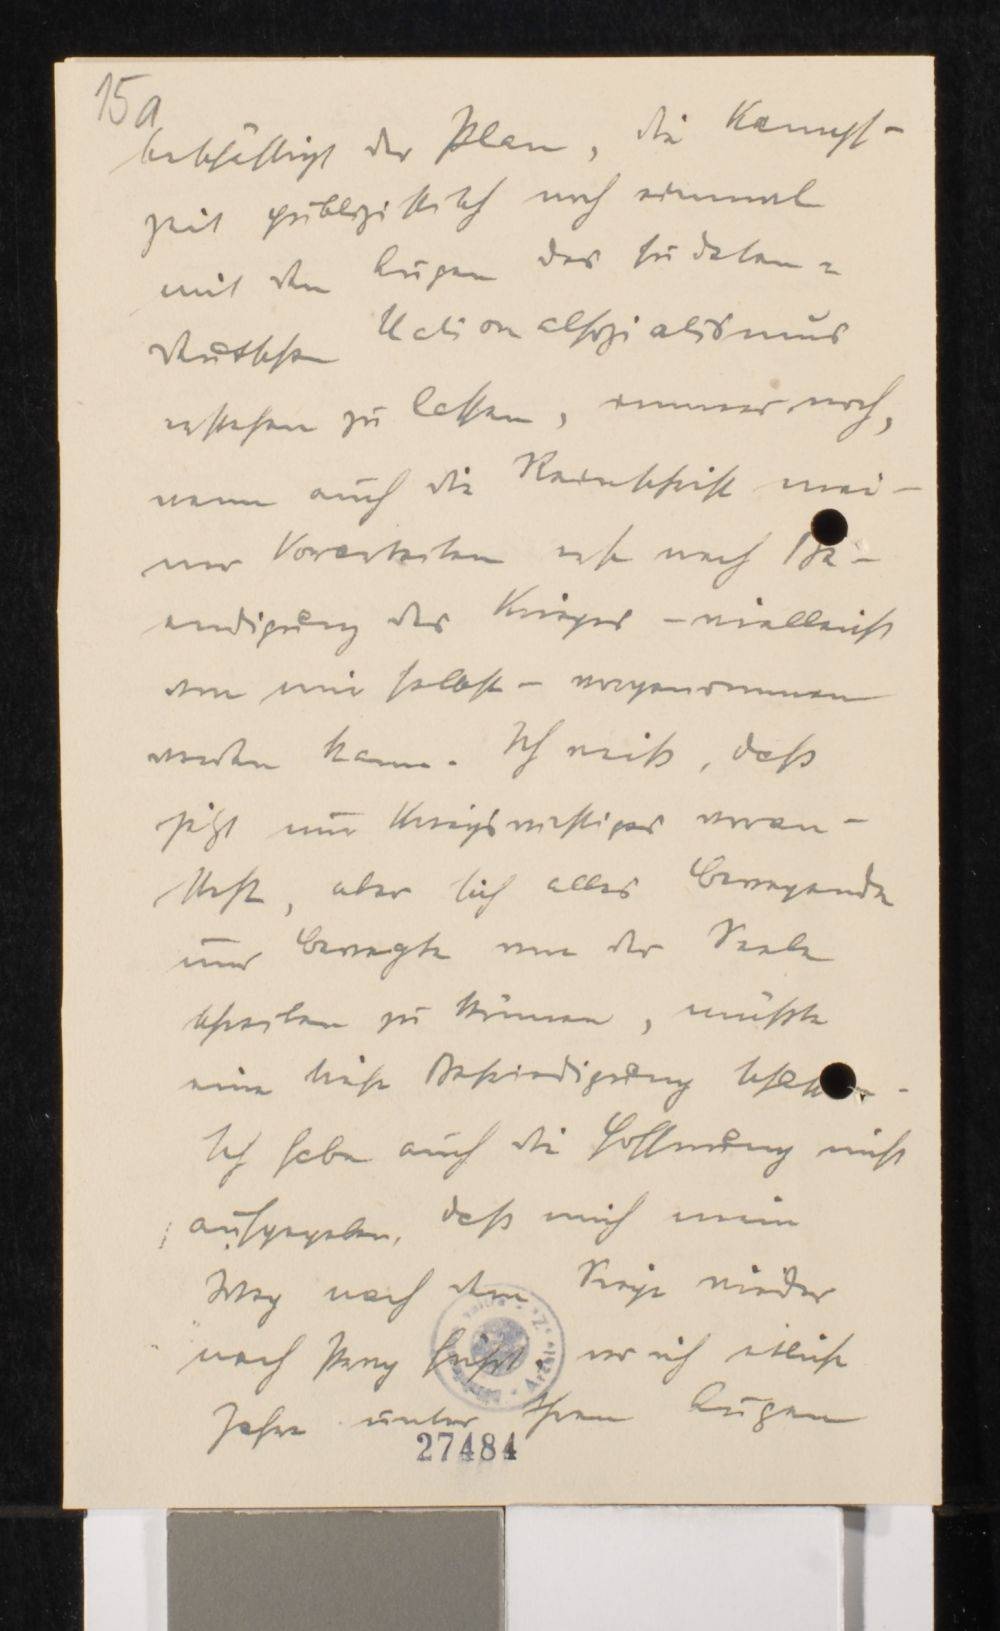 15a
beschäftigt der Plan, die Kampf-
zeit publizistisch noch einmal
mit den Augen des sudeten-
deutschen Nationalsozialismus
erstehen zu lassen, immer noch,
wenn auch die Reinschrift mei-
ner Vorarbeiten erst nach Be-
endigung des Krieges - vielleicht
von mir selbst - vorgenommen
werden kann. Ich weiß, daß
jetzt nur Kriegswichtiges voran-
steht, aber sich alles Bewegende
und Bewegte von der Seele
schreiben zu können, müßte
eine tiefe Befriedigung
Ich habe auch die Hoffnung nicht
aufgegeben, daß mich mein
Weg nach dem Siege wieder
nach Prag führt, wo ich etliche
Jahre unter Ihren Augen
27484